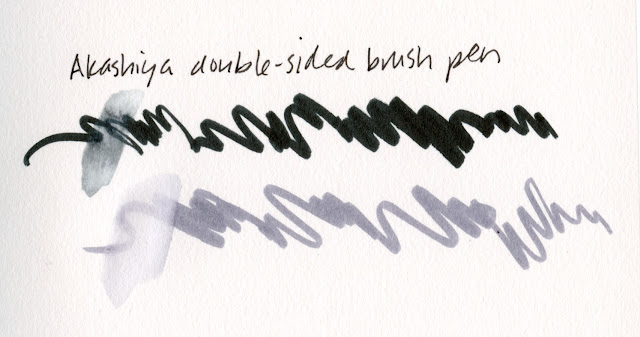 Akashiya double-sided brush pen